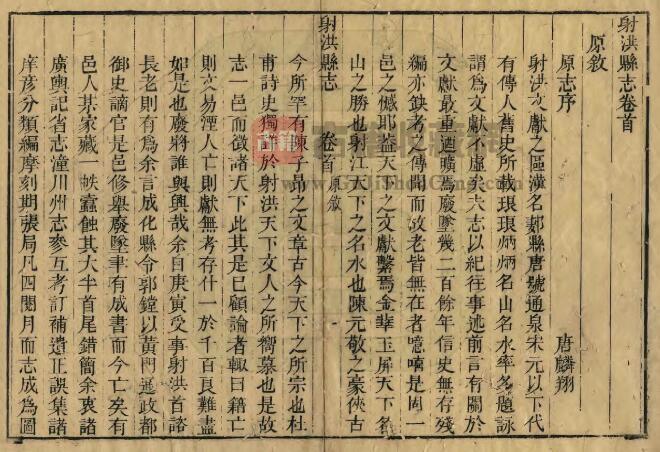 射洪縣志卷首
原敘
原志序
唐麟翔
射洪文獻之區漢名郪縣唐號通泉宋元以下代
有傳人舊史所載琅琅炳炳名山名水率多題詠
謂爲文獻不虛矣夫志以紀往事述前言有關於
文獻最重迺曠焉廢墜幾二百餘年信史無存殘
編亦缺考之傳聞而故老皆無在者噫嘻是固一
邑之憾耶葢天下之文獻繫焉金華玉屏天下名
山之勝也射江天下之名水也陳元敬之豪俠古
射洪縣志
卷首
原敘
今所罕有陳子昂之文章古今天下之所宗也杜
甫詩史獨 於射洪天下文人之所嚮慕也是故
志一邑而徵諸天下此其是已顧論者輒曰籍亡
則文易湮人亡則獻無考存什一於千百良難盡
如是也廢將誰與興哉余自庚寅受事射洪首諮
長老則有爲余言成化縣令郭鏜以黃門通政都
御史謫官是邑修舉廢墜聿有成書而今亡矣有
邑人某家藏一帙蠹蝕其大半首尾錯簡余裒諸
廣輿記省志潼川州志參互考訂補遺正誤集諸
庠彥分類編摩刻期張局凡四閱月而志成爲圖